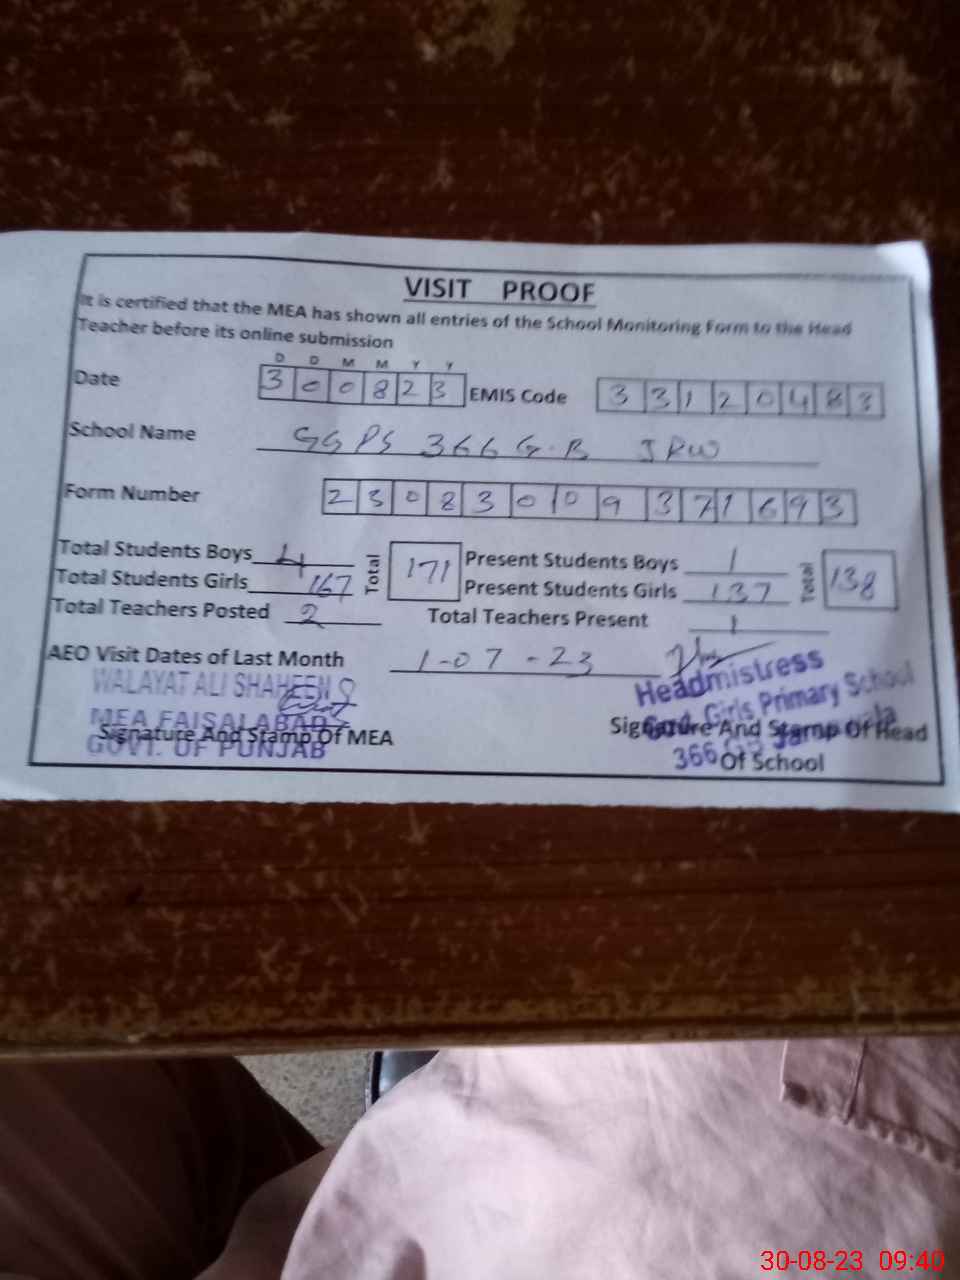 VISIT PROOF
It is certified that the MEA has shown all entries of the School Monitoring Form to the Head
Teacher before its online submission
D D M M Y Y
Date 3 0 0 8 2 3 EMIS Code 3 3 1 2 0 4 8 3
School Name GGPS 366 G.B JRW
Form Number 2 3 0 8 3 0 1 0 9 3 7 1 6 9 3
Total Students Boys 4 Total 171 Present Students Boys 1 Total 138
Total Students Girls 167 Present Students Girls 137
Total Teachers Posted 2 Total Teachers Present 1
AEO Visit Dates of Last Month 1-07-23
WALAYAT ALI SHAHEEN
MEA FAISALABAD
GOVT. OF PUNJAB
Signature And Stamp Of MEA
Headmistress
Govt. Girls Primary School
366
Signature And Stamp Of Head
Of School
30-08-23 09:40